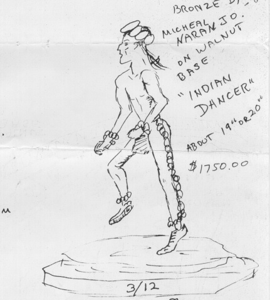 BRONZE BY
MICHEAL
NARANJO.
ON WALNUT
BASE
"INDIAN
DANCER"
ABOUT 19" OR 20"
$1750.00
3/12